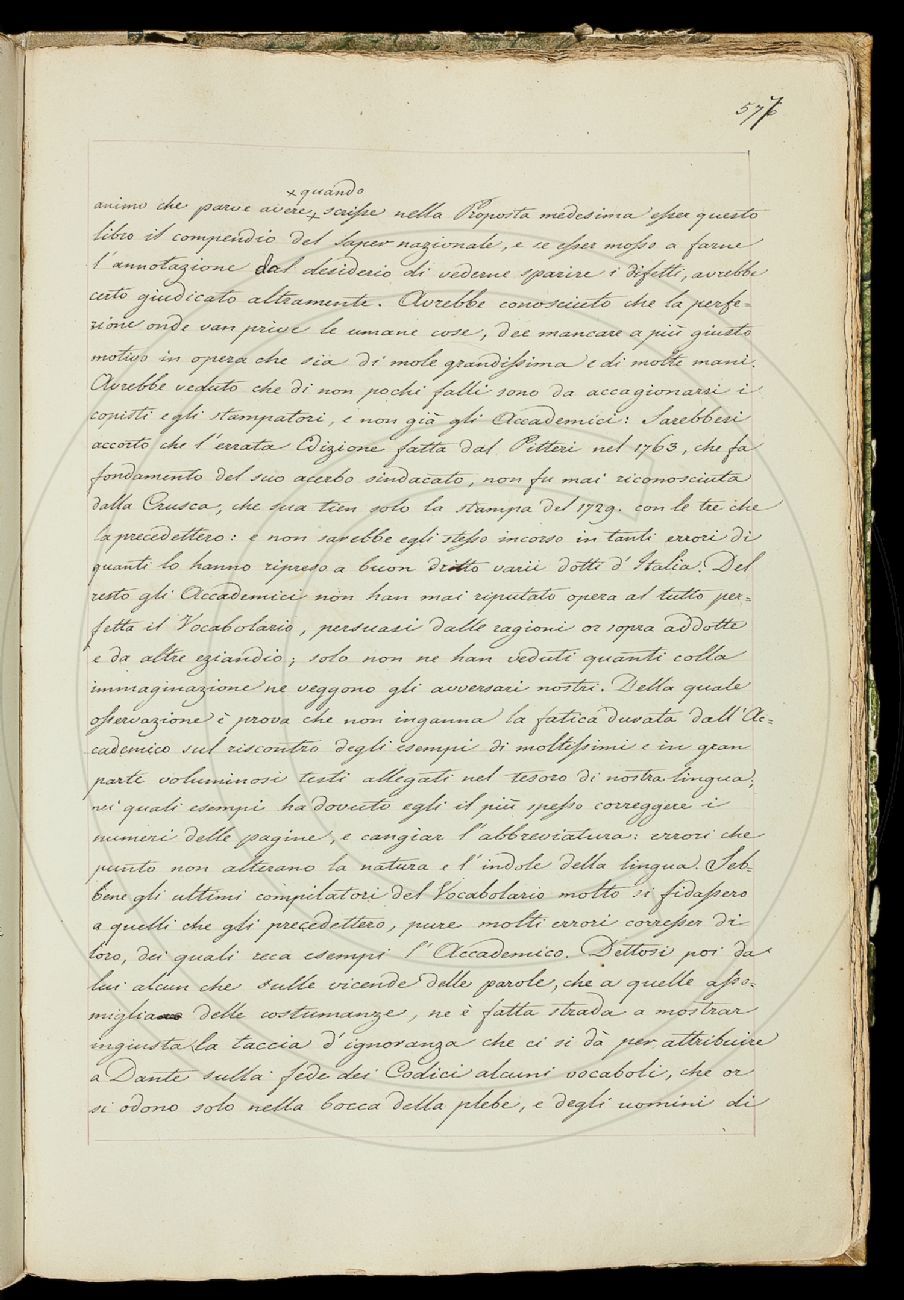 577
quando
animo che parve avere scrisse nella Proposta medesima esser questo
libro il compendio del saper nazionale, e se esser mosso a farne
l'annotazione dal desiderio di vederne sparire i difetti, avrebbe
certo giudicato altramente. Avrebbe conosciuto che la perfe=
zione onde van prive le umane cose, dee mancare a più giusto
motivo in opera che sia di mole grandissima e di molte mani.
Avrebbe veduto che di non pochi falli sono da accagionarsi i
copisti e gli stampatori, e non già gli Accademici: Sarebbesi
accorto che l'errata Edizione fatta dal Pitteri nel 1763, che fa
fondamento del suo acerbo sindacato, non fu mai riconosciuta
dalla Crusca, che sua tien solo la stampa del 1729. con le tre che
la precedettero: e non sarebbe egli stesso incorso in tanti errori di
quanti lo hanno ripreso a buon dritto varii dotti d'Italia. Del
resto gli Accademici non han mai riputato opera al tutto per=
fetta il Vocabolario, persuasi dalle ragioni or sopra addotte
e da altre eziandio; solo non ne han veduti quanti colla
immaginazione ne veggono gli avversari nostri. Della quale
osservazione è prova che non inganna la fatica durata dall'Ac=
cademico sul riscontro degli esempi di moltissimi e in gran
parte voluminosi testi allegati nel tesoro di nostra lingua;
nei quali esempi ha dovuto egli il più spesso correggere i
numeri delle pagine, e cangiar l'abbreviatura: errori che
punto non alterano la natura e l'indole della lingua. Seb=
bene gli ultimi compilatori del Vocabolario molto si fidassero
a quelli che gli precedettero, pure molti errori corresser di
loro, dei quali reca esempi l'Accademico. Dettosi poi da
lui alcun che sulle vicende delle parole, che a quelle asso=
miglia delle costumanze, ne è fatta strada a mostrar
ingiusta la taccia d'ignoranza che ci si dà per attribuire
a Dante sulla fede dei Codici alcuni vocaboli, che or
si odono solo nella bocca della plebe, e degli uomini di